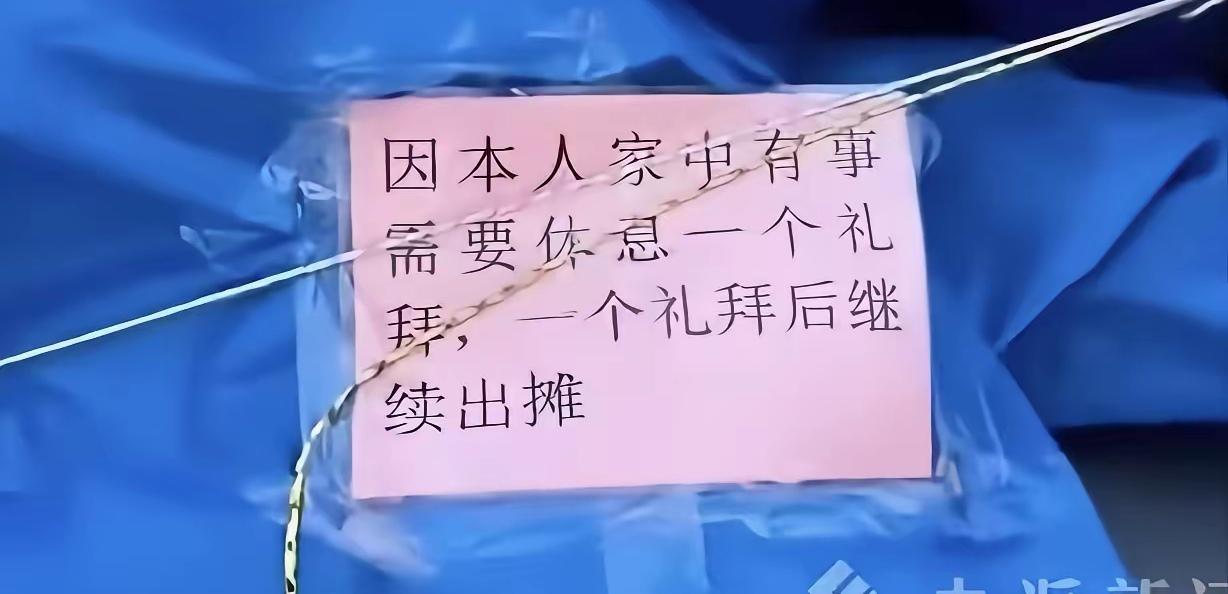 因本人家中有事
需要休息一个礼
拜，一个礼拜后继
续出摊